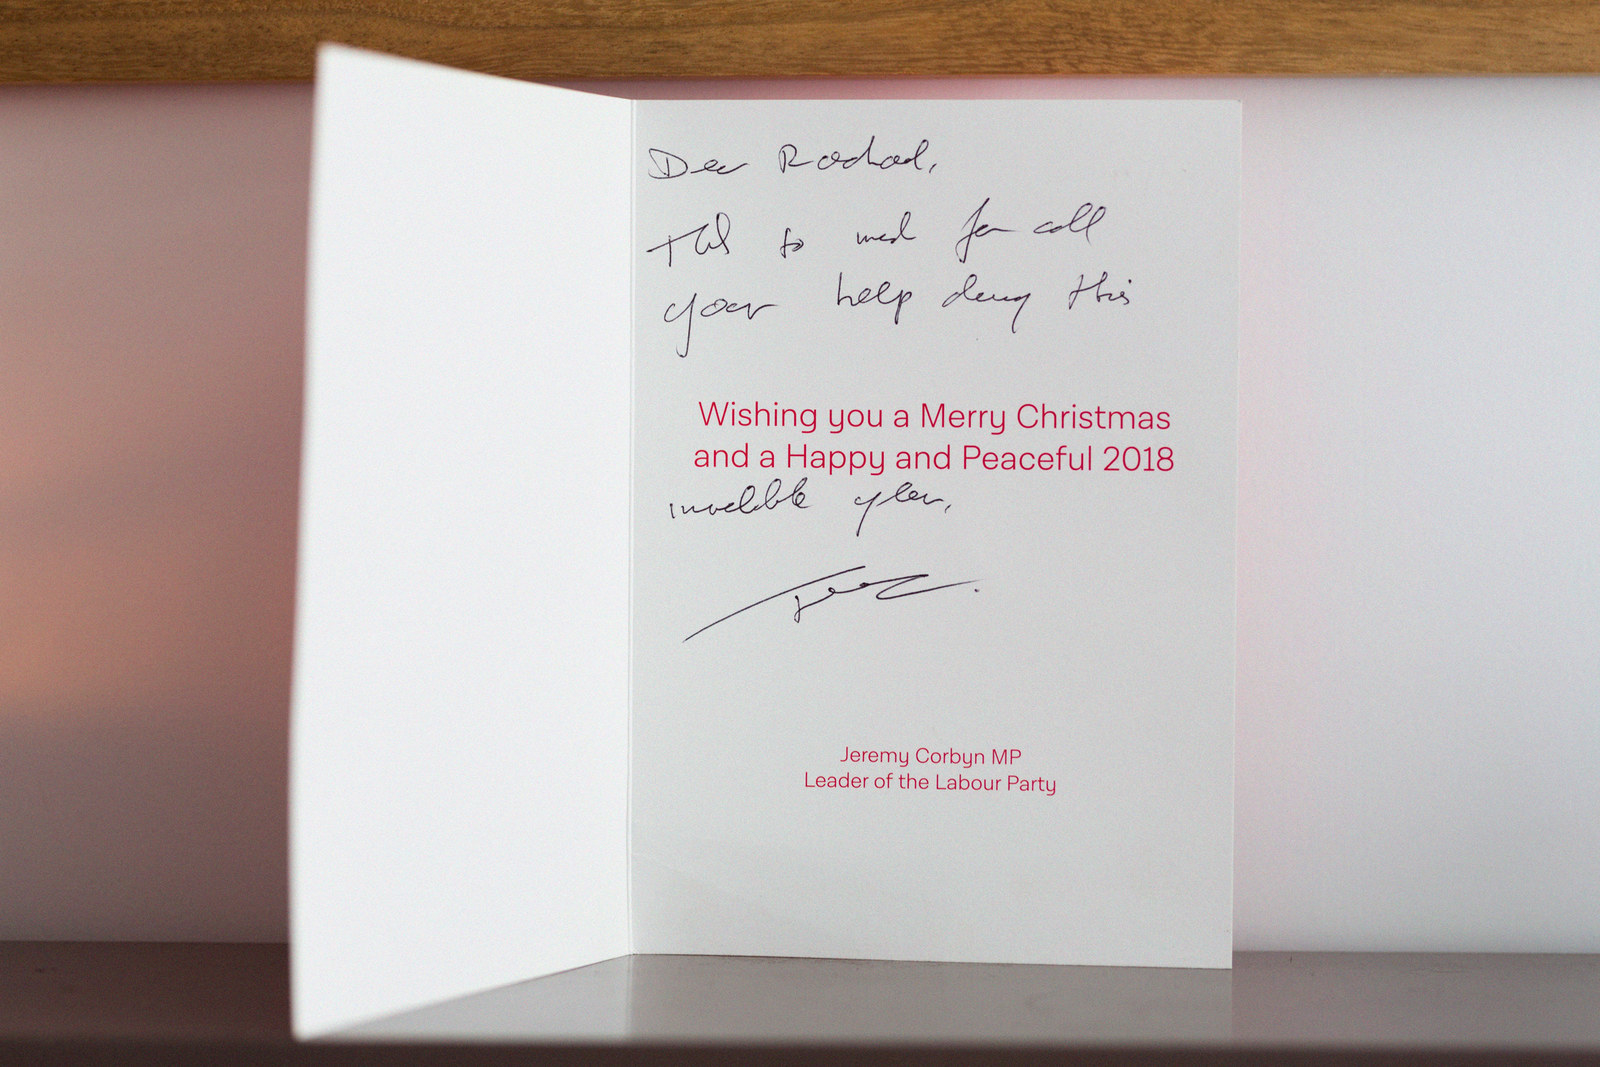 Dear Rachael,
Thks so much for all
your help during this
Wishing you a Merry Christmas
and a Happy and Peaceful 2018
incredible year,
Jeremy Corbyn MP
Leader of the Labour Party